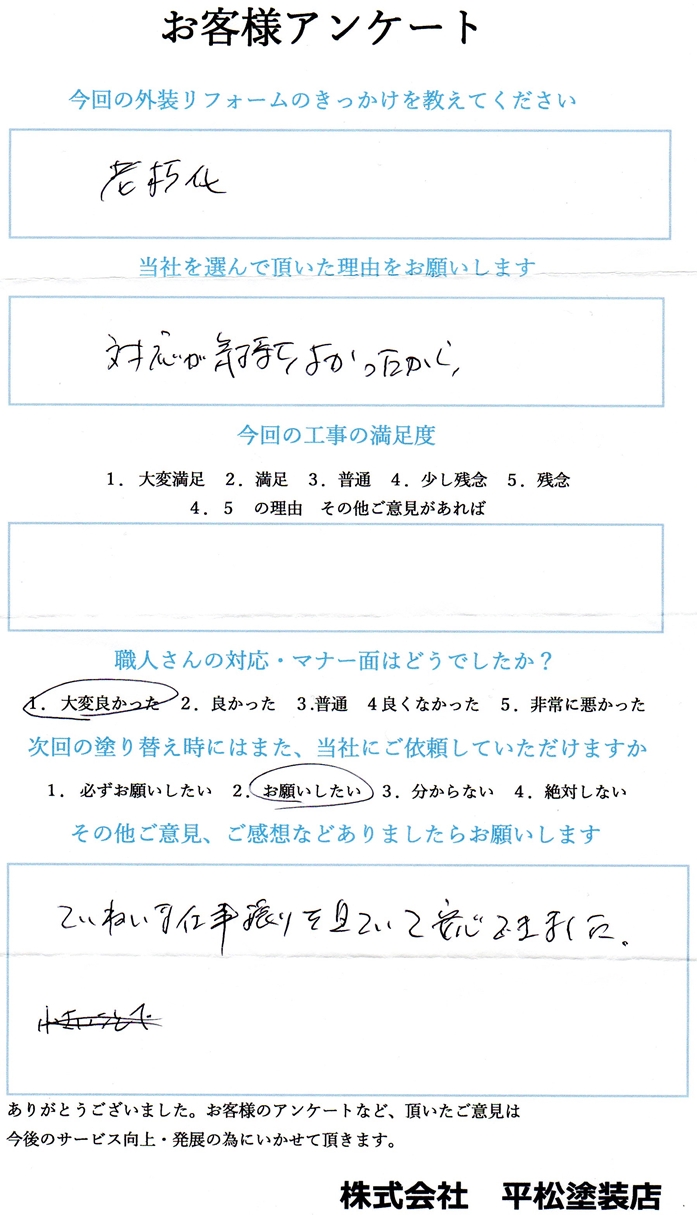 お客様アンケート
今回の外装リフォームのきっかけを教えてください
老朽化
当社を選んで頂いた理由をお願いします
対応が気持ちよかったから、
今回の工事の満足度
1. 大変満足 2. 満足 3. 普通 4. 少し残念 5. 残念
4. 5 の理由 その他ご意見があれば
職人さんの対応・マナー面はどうでしたか?
1. 大変良かった 2. 良かった 3.普通 4良くなかった 5. 非常に悪かった
次回の塗り替え時にはまた、当社にご依頼していただけますか
1. 必ずお願いしたい 2. お願いしたい 3. 分からない 4. 絶対しない
その他ご意見、ご感想などありましたらお願いします
ていねいな仕事振りを見ていて安心できました。
ありがとうございました。お客様のアンケートなど、頂いたご意見は
今後のサービス向上・発展の為にいかせて頂きます。
株式会社 平松塗装店